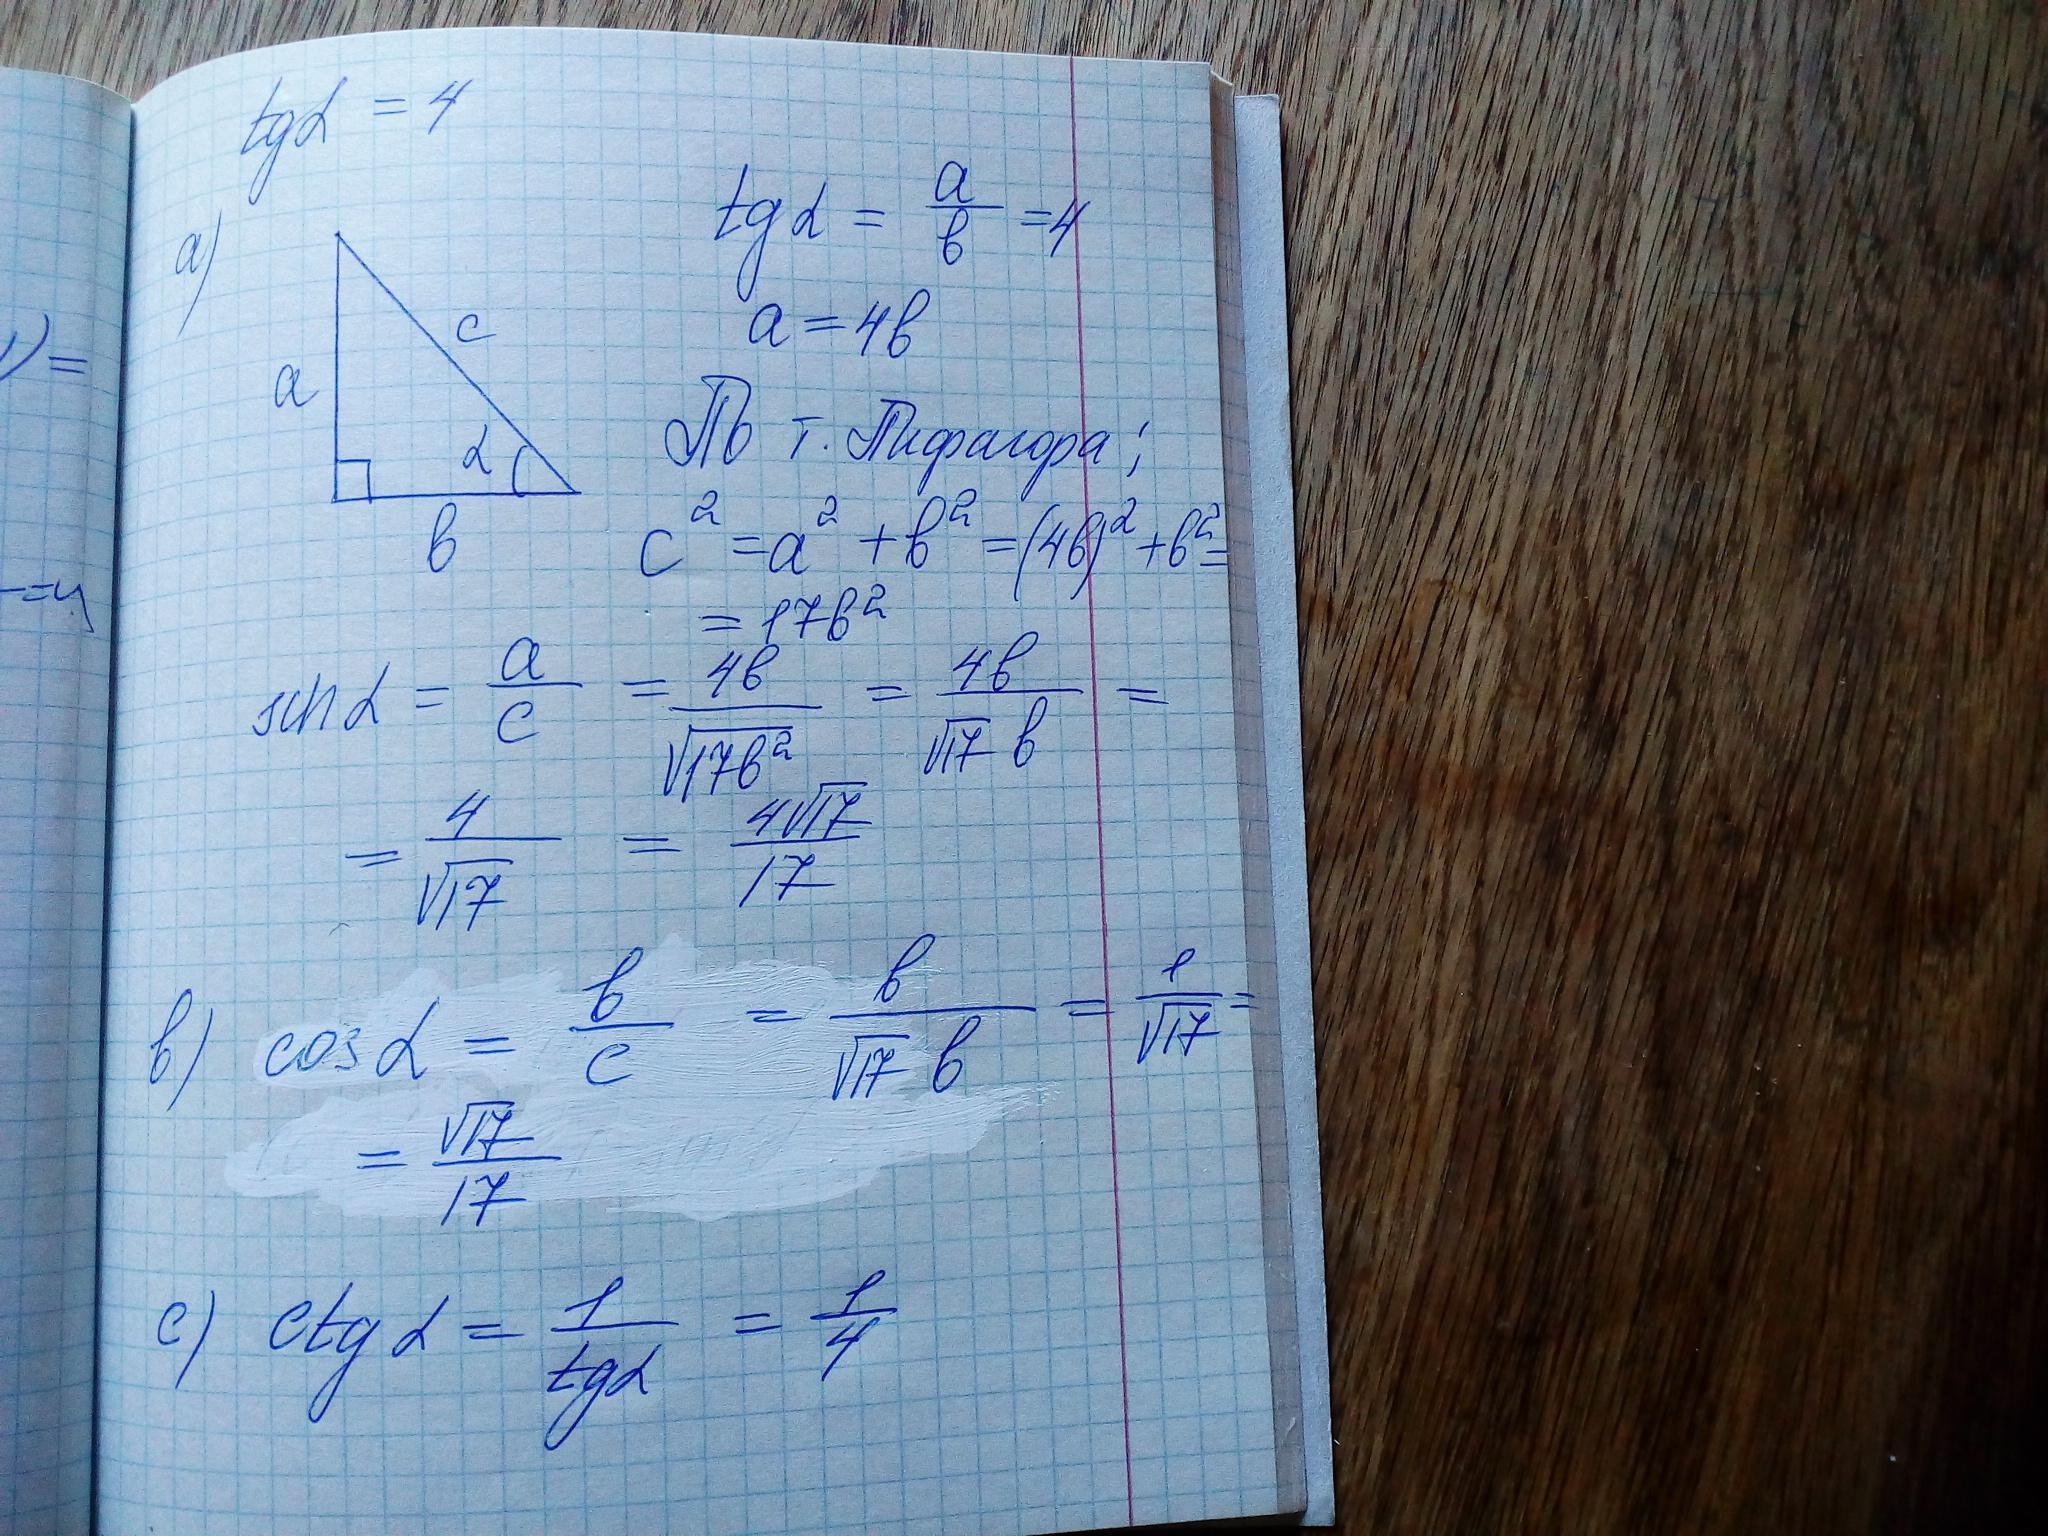 tgα = 4
a)
a
c
α
b
tgα = a/b = 4
a = 4b
По т. Пифагора;
c² = a² + b² = (4b)² + b² =
= 17b²
sin α = a/c = 4b/√17b² = 4b/√17 b =
= 4/√17 = 4√17/17
b) cos α = b/c = b/√17 b = 1/√17 =
= √17/17
c) ctg α = 1/tgα = 1/4